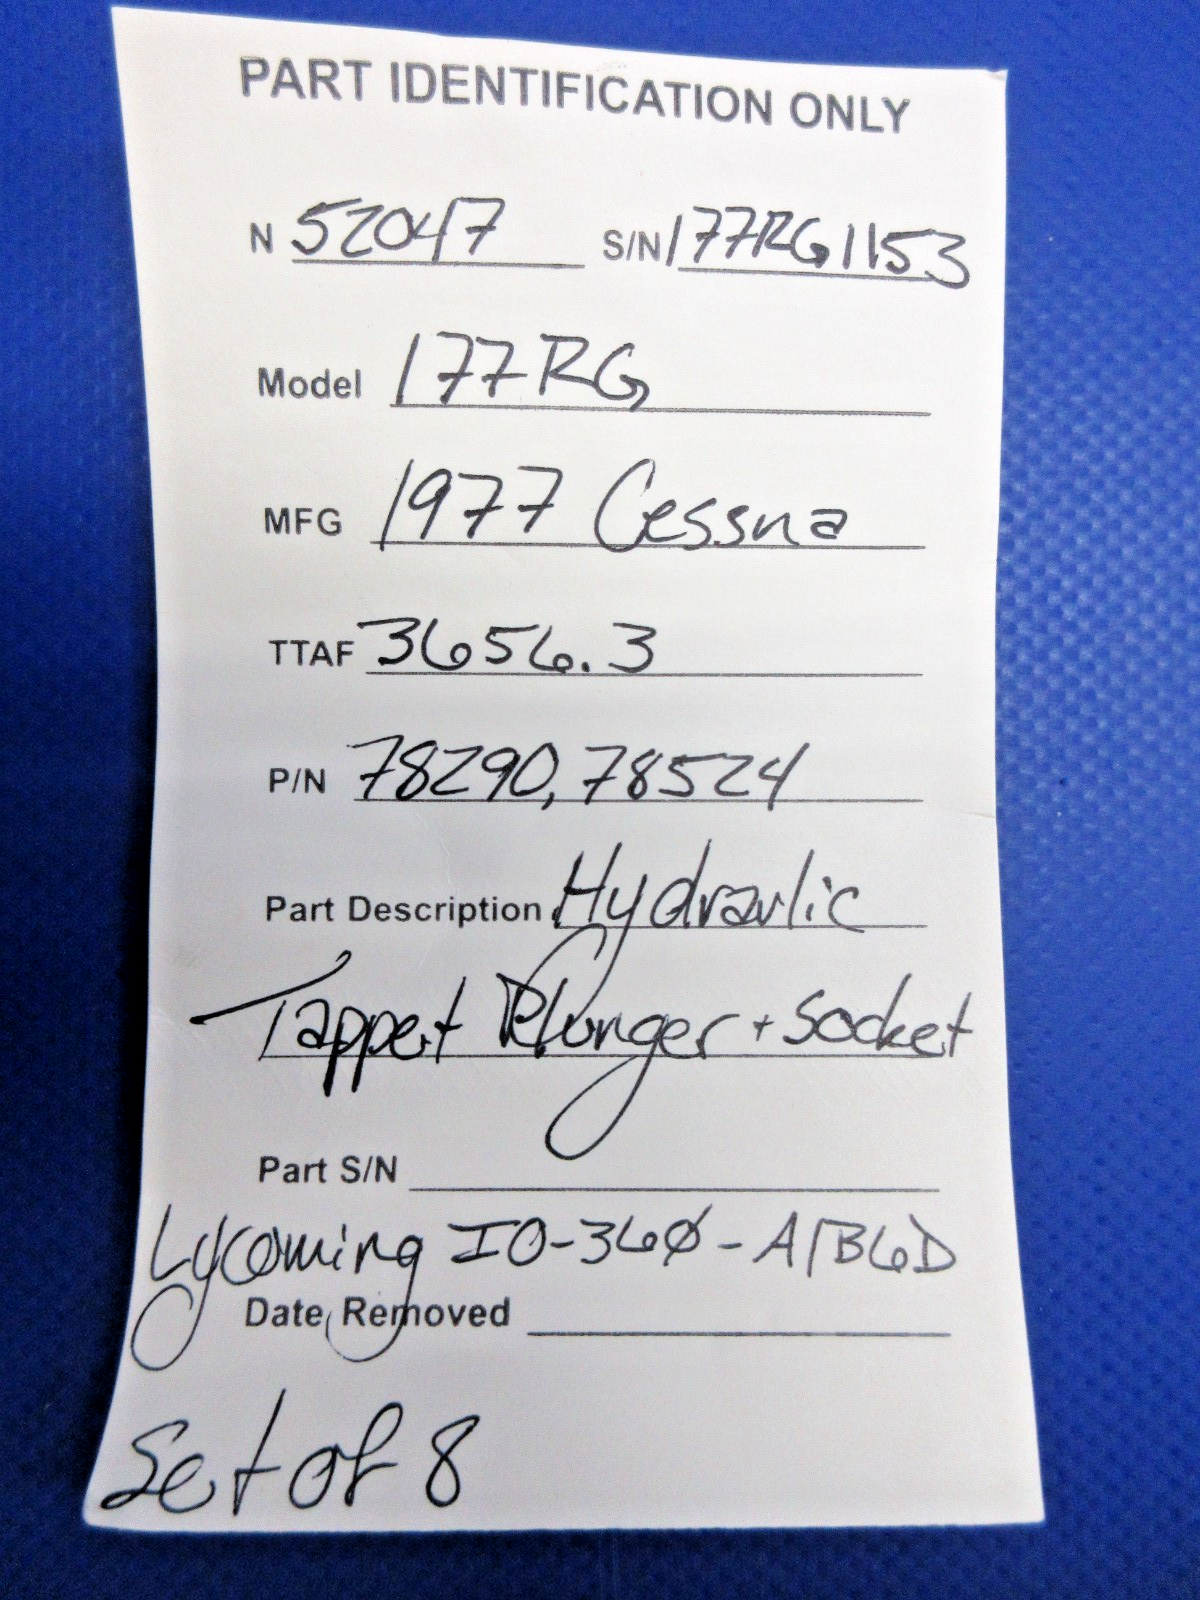 PART IDENTIFICATION ONLY
N 52047 S/N 177RG1153
Model 177RG
MFG 1977 Cessna
TTAF 3656.3
P/N 78290, 78524
Part Description Hydraulic
Tappet Plunger + Socket
Part S/N
Lycoming IO-360-A1B6D
Date Removed
Set of 8